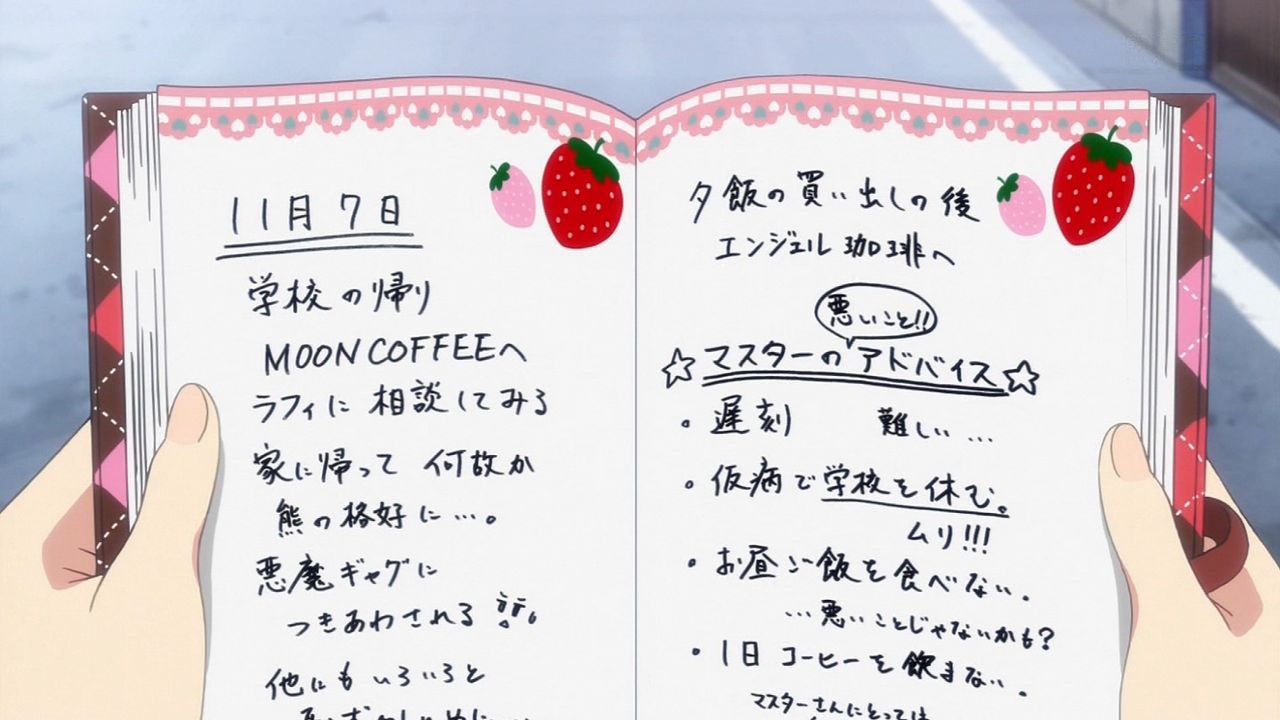 11月7日
学校の帰り
MOON COFFEEへ
ラフィに相談してみる
家に帰って何故か
熊の格好に…。
悪魔ギャグに
つきあわされる
他にもいろいろと
夕飯の買い出しの後
エンジェル珈琲へ
悪いこと!!
☆マスターのアドバイス☆
・遅刻 難しい…
・仮病で学校を休む。
ムリ!!!
・お昼ご飯を食べない。
…悪いことじゃないかも?
・1日コーヒーを飲まない。
マスターさんにとっては